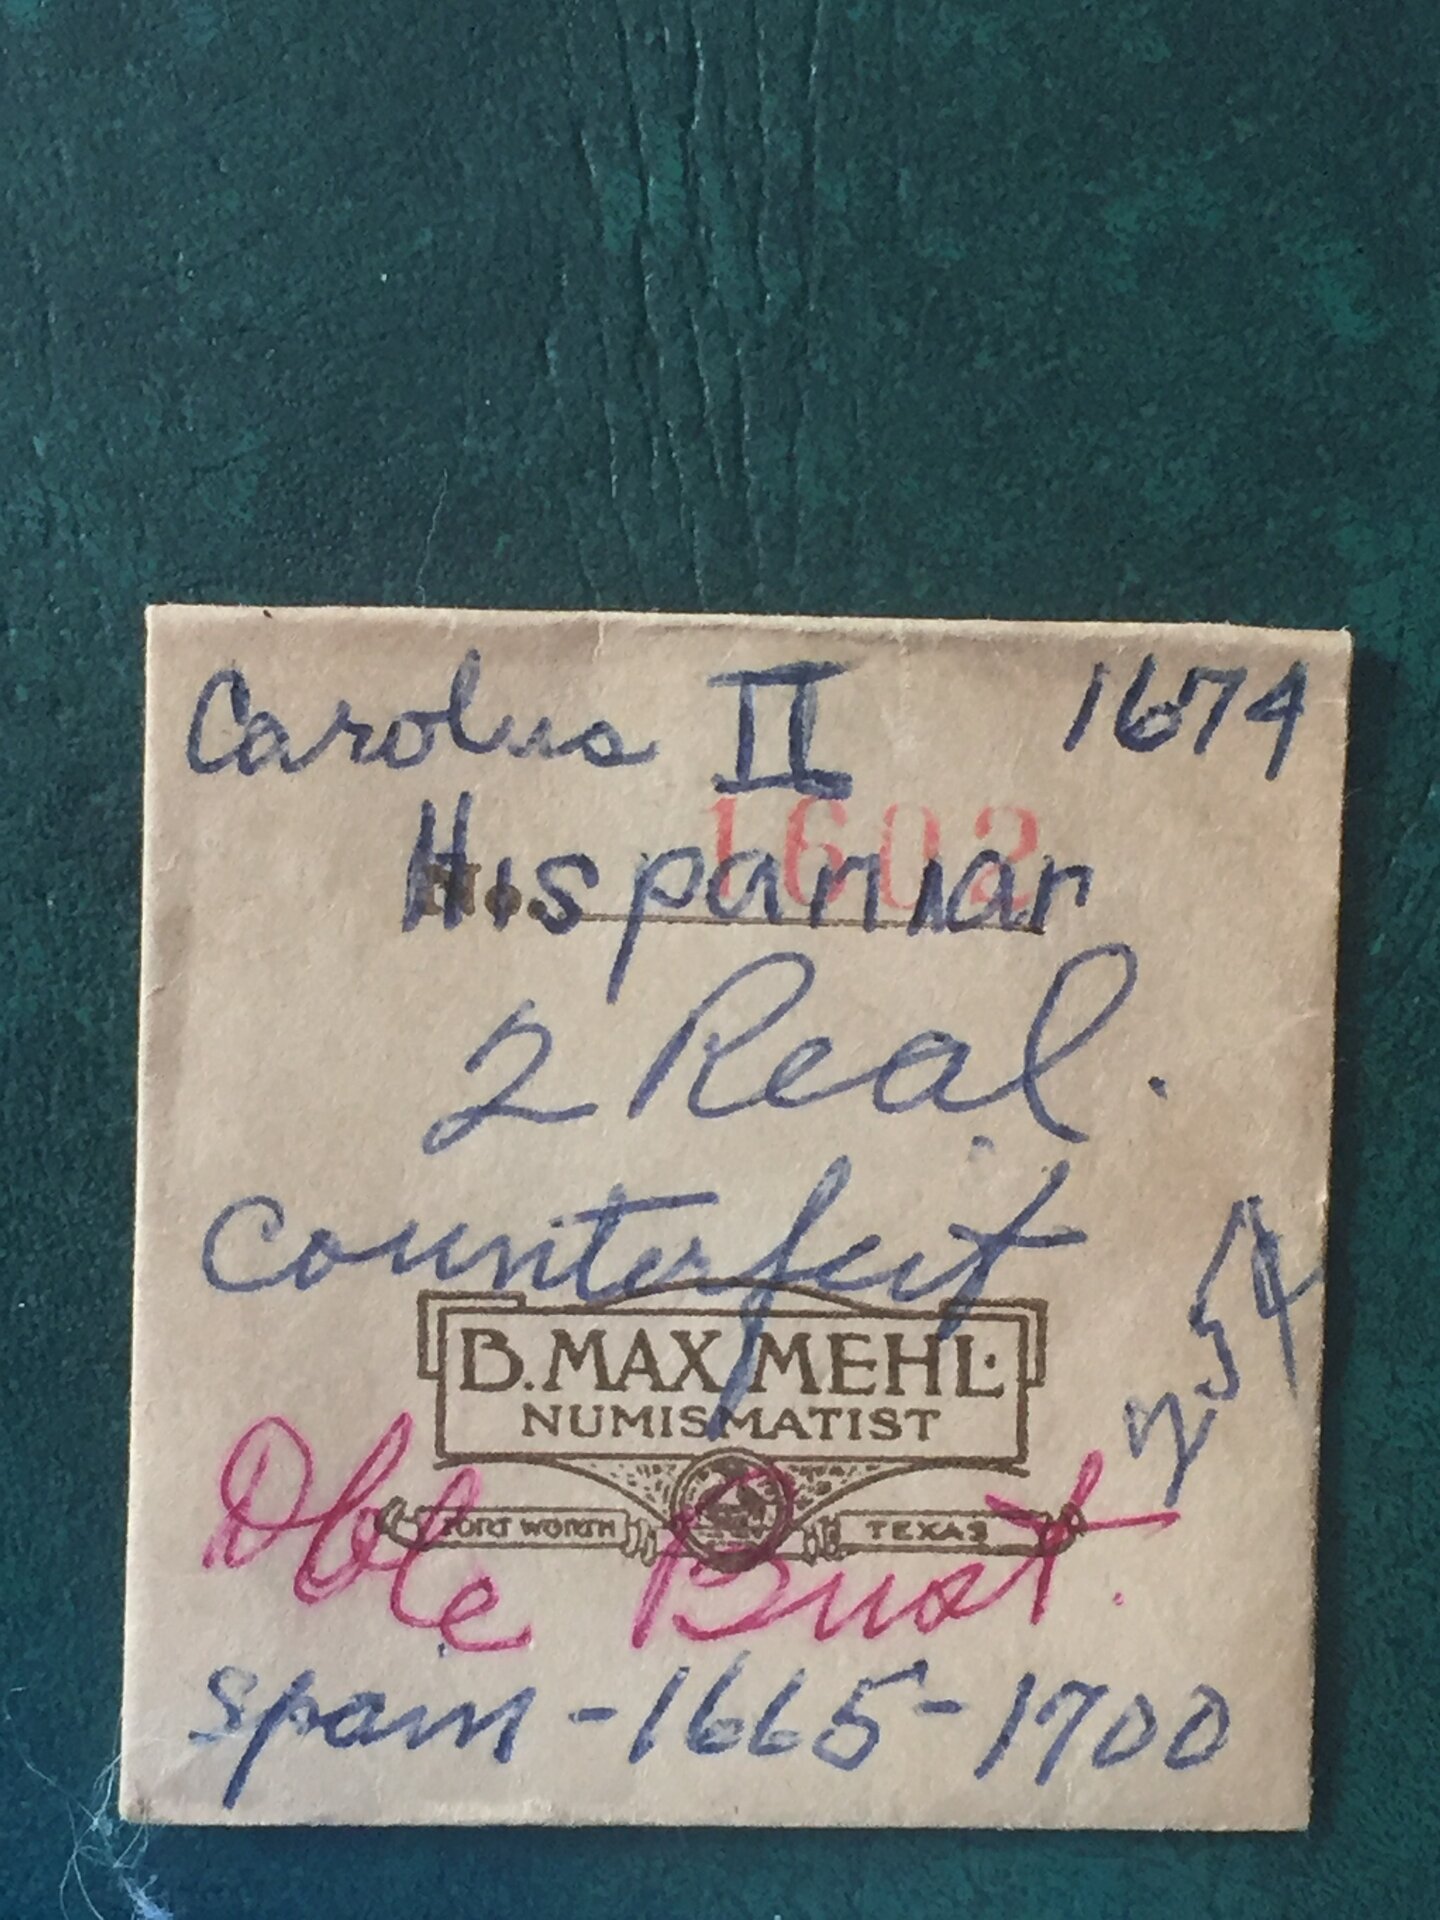 Carolus II 1674
No. 1602
Hispaniar
2 Real.
Counterfeit
254
B. MAX MEHL.
NUMISMATIST
FORT WORTH TEXAS
Dble Bust.
Spain - 1665 - 1700